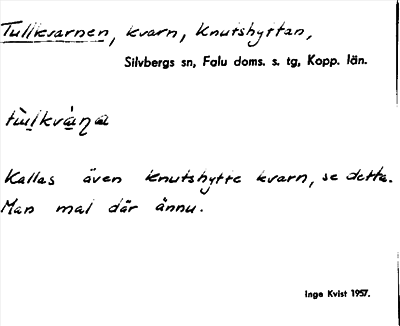 Tullkvarnen, kvarn, Knutshyttan,
Silvbergs sn, Falu doms. s. tg, Kopp. län.
Kallas även Knutshytte kvarn, se detta.
Man mal där ännu.
Inge Kvist 1957.